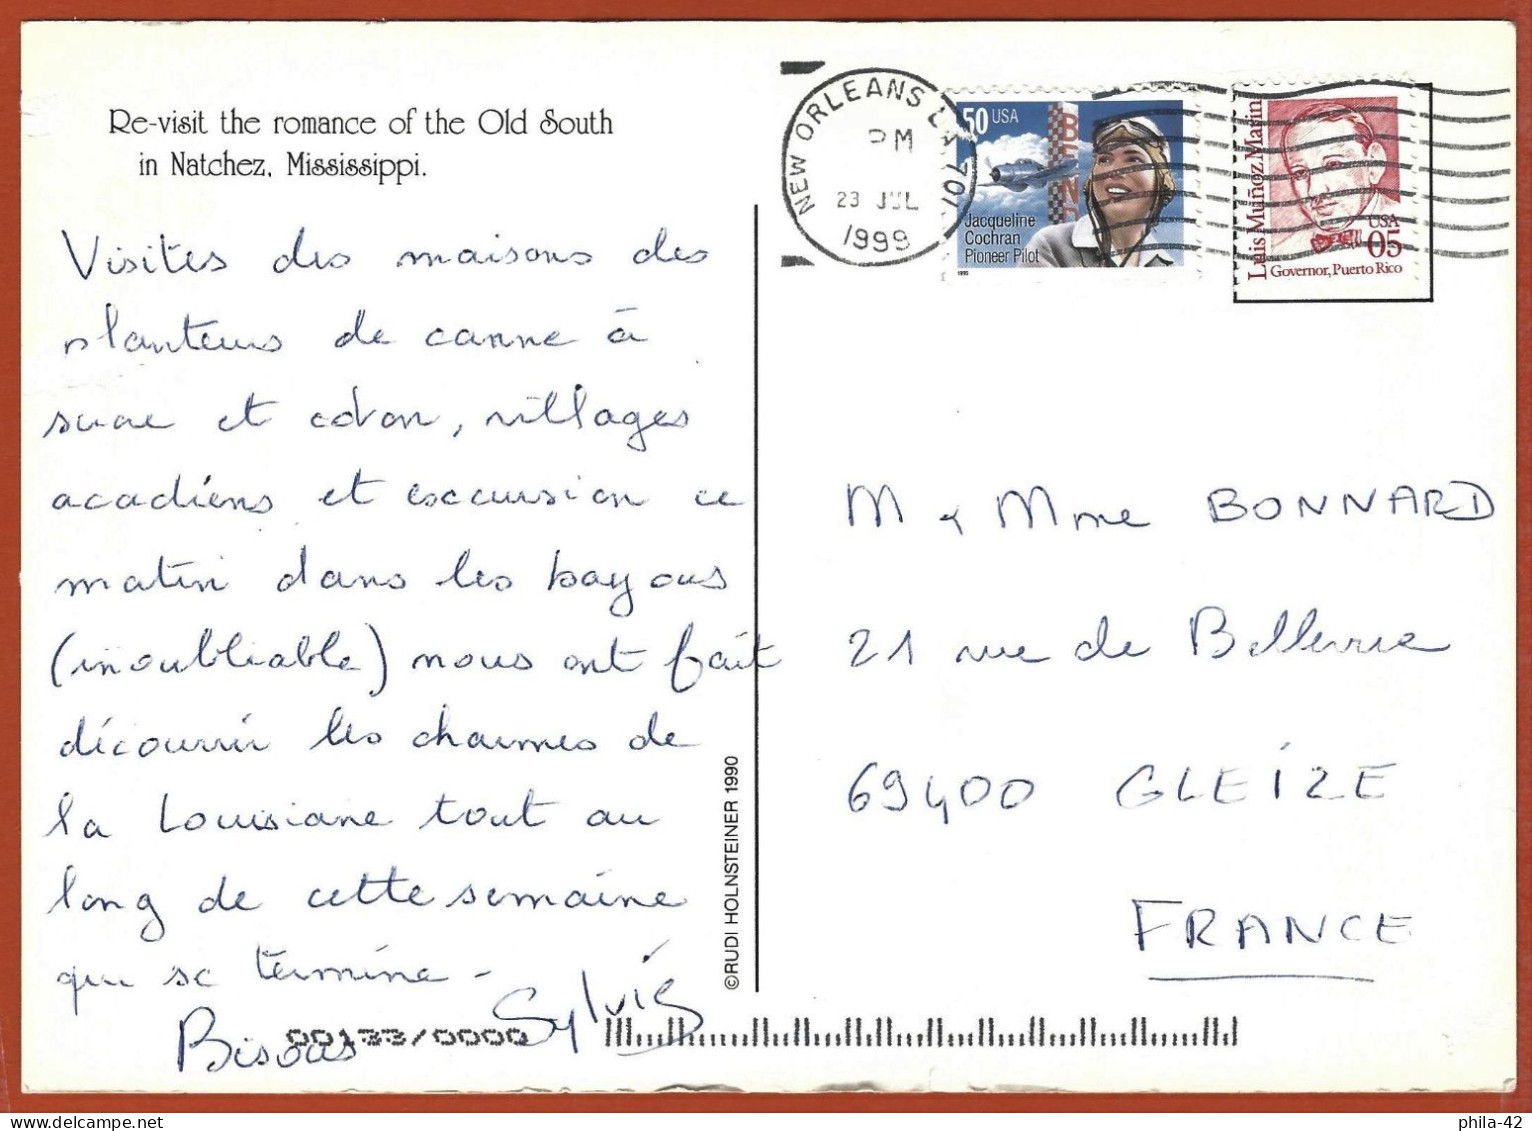 Re-visit the romance of the Old South
in Natchez, Mississippi.
Visites des maisons des
planteurs de canne à
sucre et coton, villages
acadiens et excursion ce
matin dans les bayous
(inoubliable) nous ont fait
découvrir les charmes de
la Louisiane tout au
long de cette semaine
qui se termine -
Bisous Sylvie
00133/0000
©RUDI HOLNSTEINER 1990
NEW ORLEANS LA 701
PM
23 JUL
1999
50 USA
Jacqueline
Cochran
Pioneer Pilot
Luis Muñoz Marín
USA
05
Governor, Puerto Rico
M & Mme BONNARD
21 rue de Bellevue
69400 GLEIZE
FRANCE
phila-42